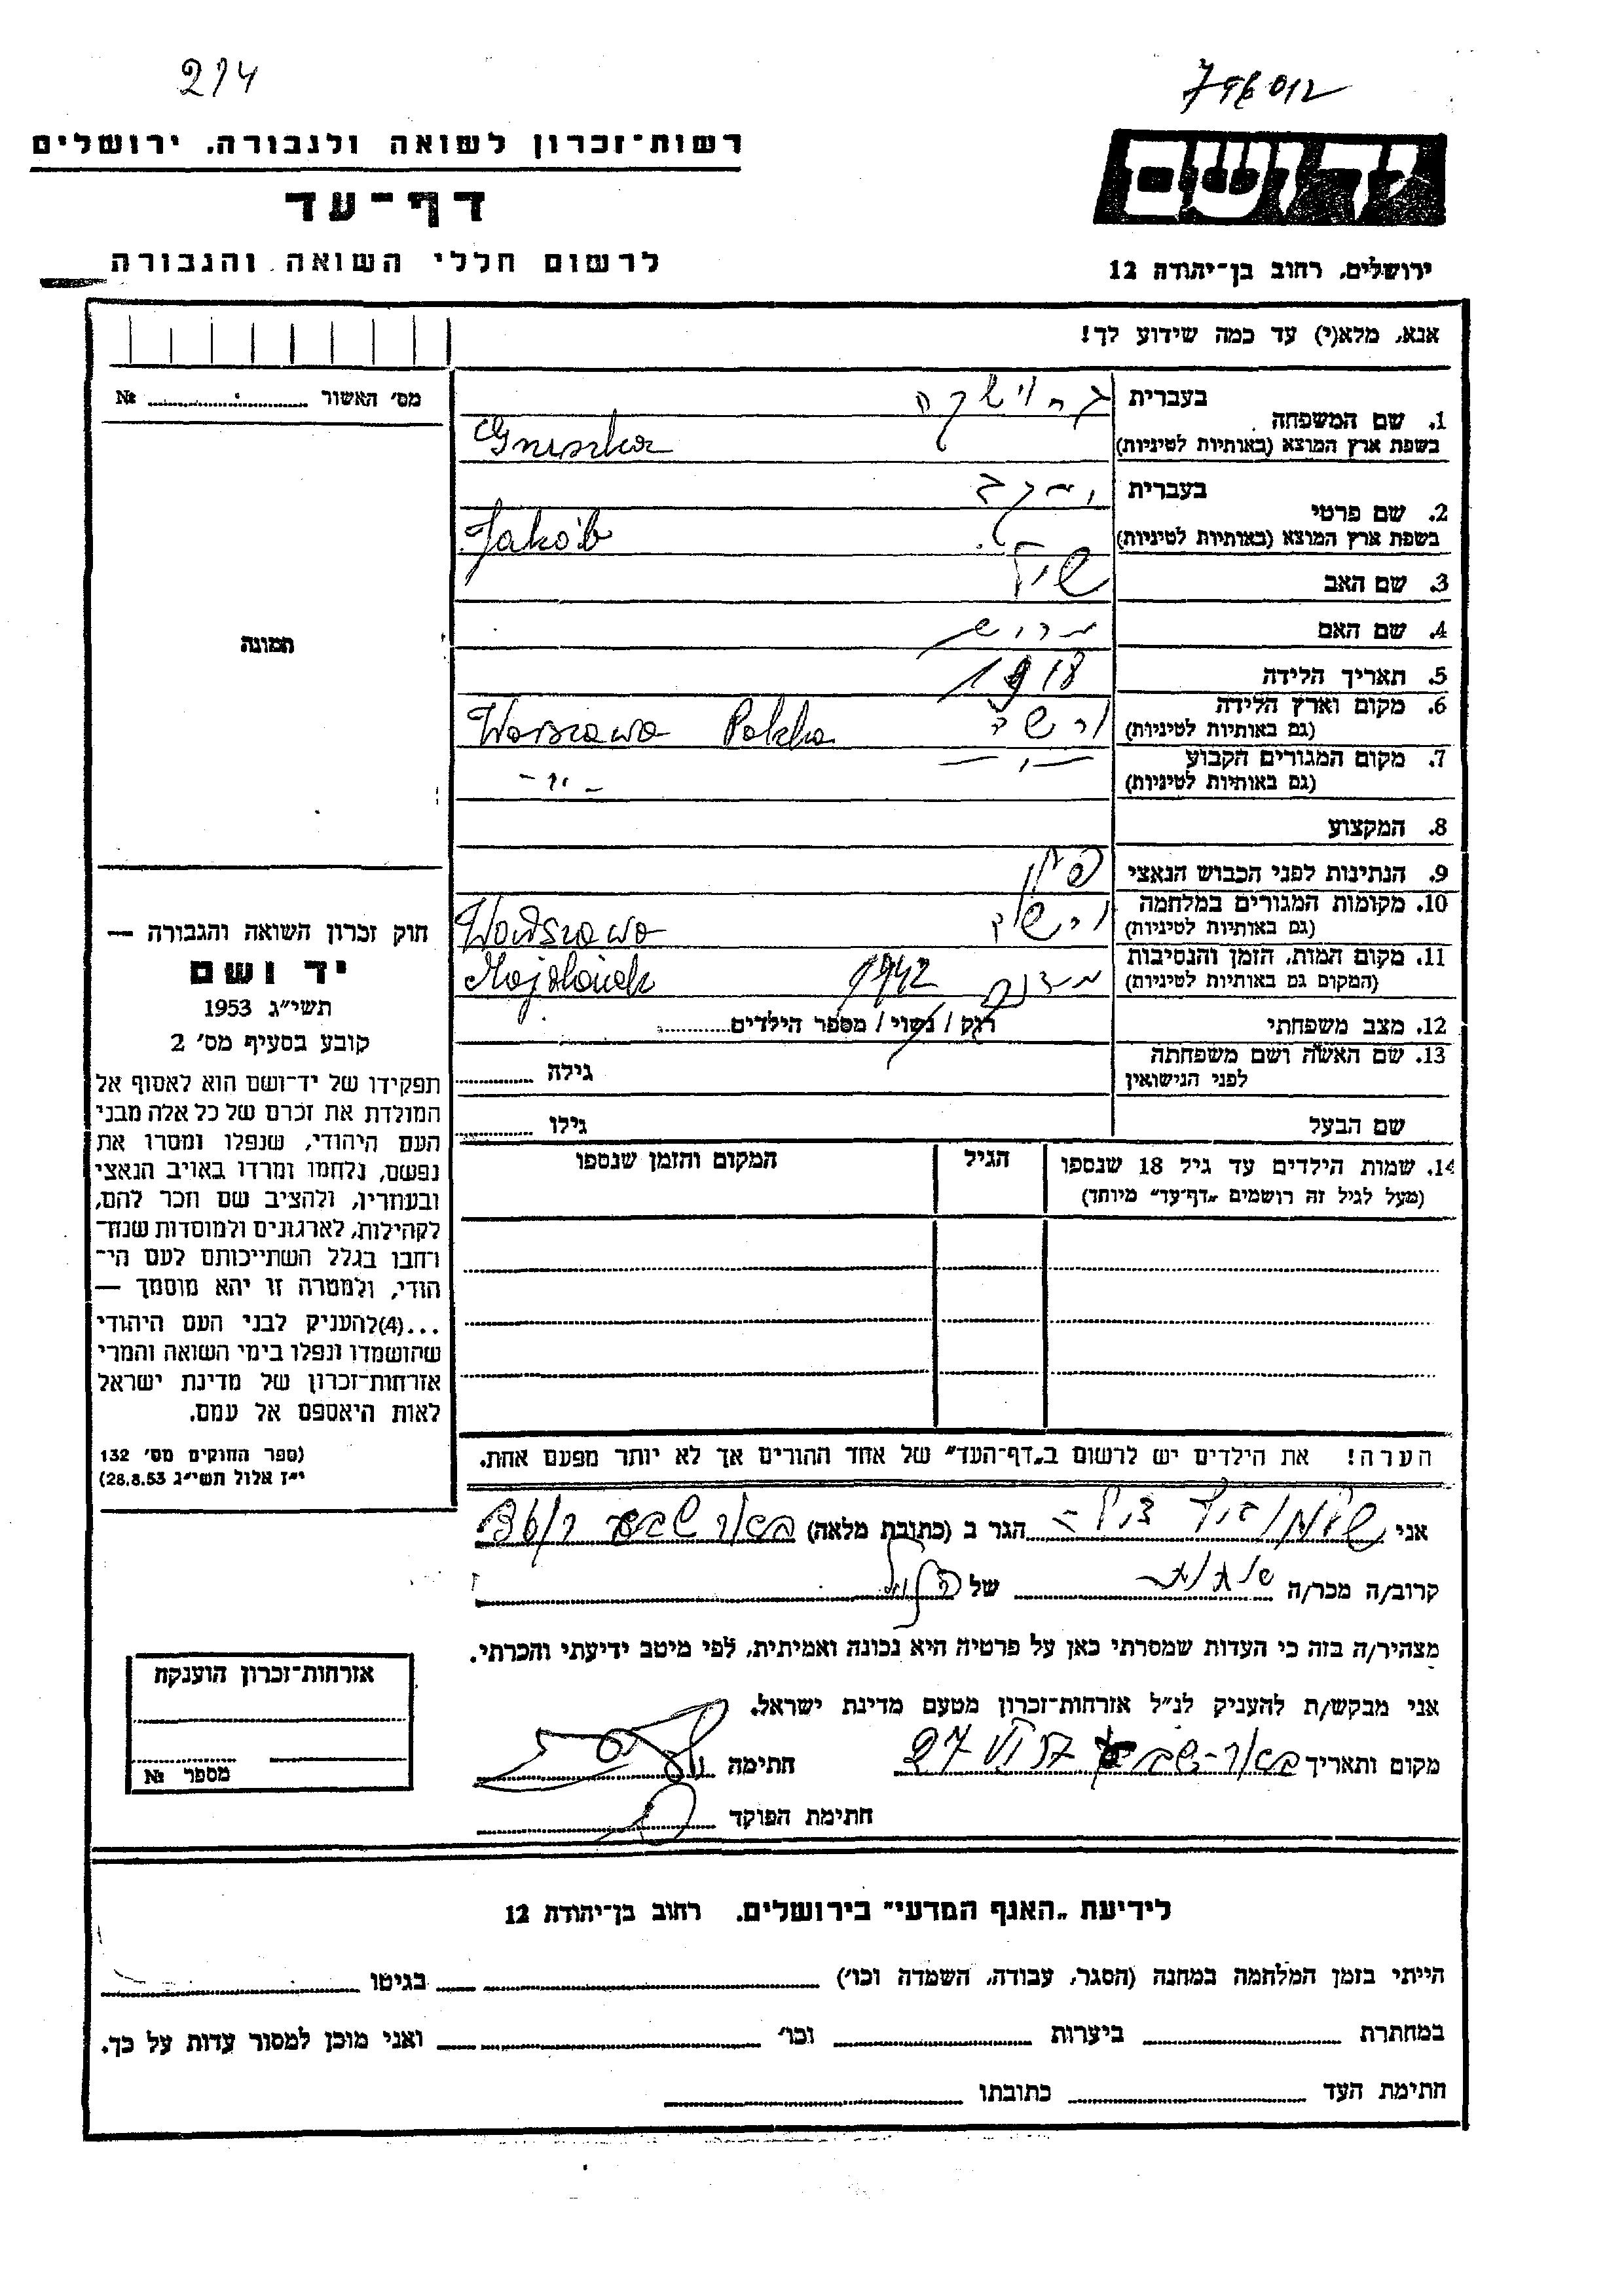 214
רשות־זכרון לשואה ולגבורה, ירושלים
דף־עד
לרשום חללי השואה והגבורה
יד ושם
ירושלים, רחוב בן־יהודה 12
אנא, מלא(י) עד כמה שידוע לך!
מס׳ האשור № ....................
1. שם המשפחה
בעברית
בשפת ארץ המוצא (באותיות לטיניות)
2. שם פרטי
בעברית
בשפת ארץ המוצא (באותיות לטיניות) Jakób
3. שם האב
4. שם האם
5. תאריך הלידה 1918
6. מקום וארץ הלידה
(גם באותיות לטיניות) Warszawa Polska
7. מקום המגורים הקבוע
(גם באותיות לטיניות) -"-
8. המקצוע
9. הנתינות לפני הכבוש הנאצי פולין
10. מקומות המגורים במלחמה
(גם באותיות לטיניות) Warszawa
11. מקום המות, הזמן והנסיבות
(המקום גם באותיות לטיניות) 1942 Majdanek
12. מצב משפחתי רוק / נשוי / מספר הילדים............
13. שם האשה ושם משפחתה
לפני הנישואין גילה ............
שם הבעל גילו ............
14. שמות הילדים עד גיל 18 שנספו הגיל המקום והזמן שנספו
(מעל לגיל זה רושמים „דף־עד״ מיוחד)
הערה! את הילדים יש לרשום ב„דף־העד״ של אחד ההורים אך לא יותר מפעם אחת.
תמונה
חוק זכרון השואה והגבורה —
יד ושם
תשי״ג 1953
קובע בסעיף מס׳ 2
תפקידו של יד־ושם הוא לאסוף אל
המולדת את זכרם של כל אלה מבני
העם היהודי, שנפלו ומסרו את
נפשם, נלחמו ומרדו באויב הנאצי
ובעוזריו, ולהציב שם וזכר להם,
לקהילות, לארגונים ולמוסדות שנח־
רחבו בגלל השתייכותם לעם הי־
הודי, ולמטרה זו יהא מוסמך —
...(4)להעניק לבני העם היהודי
שהושמדו ונפלו בימי השואה והמרי
אזרחות־זכרון של מדינת ישראל
לאות היאספם אל עמם.
(ספר החוקים מס׳ 132
י״ז אלול תשי״ג 28.8.53)
אני הגר ב (כתובת מלאה) באר שבע
קרוב/ה מכר/ה של
מצהיר/ה בזה כי העדות שמסרתי כאן על פרטיה היא נכונה ואמיתית, לפי מיטב ידיעתי והכרתי.
אני מבקש/ת להעניק לנ״ל אזרחות־זכרון מטעם מדינת ישראל.
מקום ותאריך באר-שבע חתימה
חתימת הפוקד
אזרחות־זכרון הוענקה
מספר №
לידיעת „האגף המדעי״ בירושלים, רחוב בן־יהודה 12
הייתי בזמן המלחמה במחנה (הסגר, עבודה, השמדה וכו׳) בגיטו
במחתרת ביערות וכו׳ ואני מוכן למסור עדות על כך.
חתימת העד כתובתו